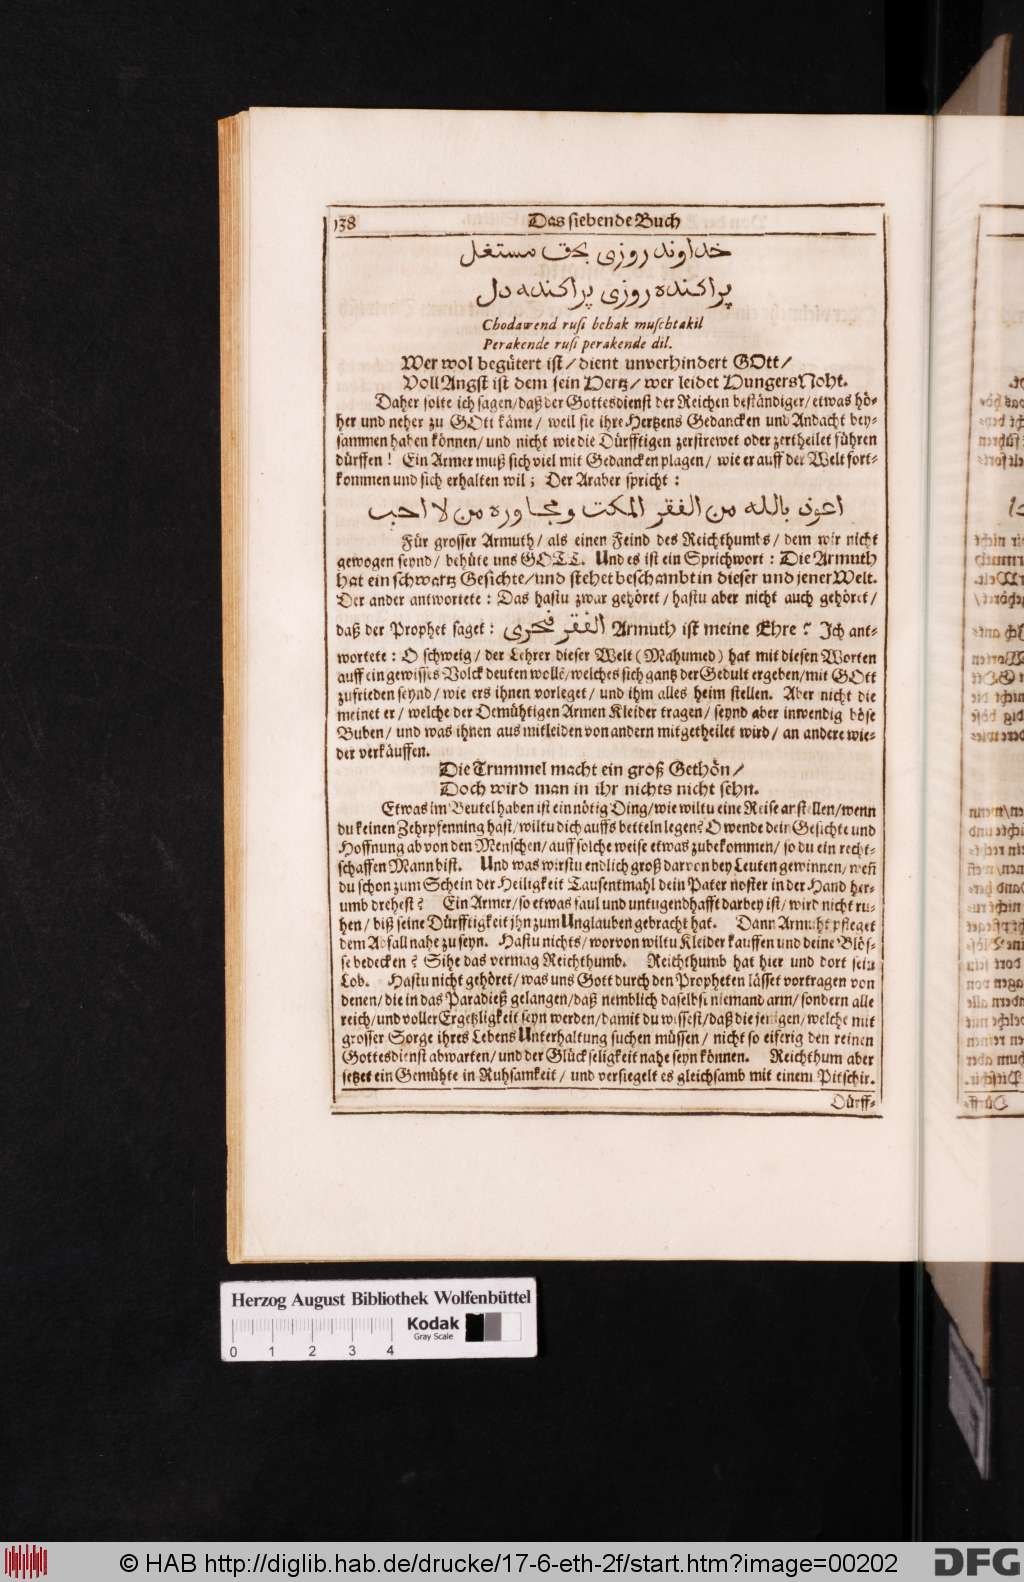 138 Das siebende Buch
خداوند روزی بحق مستغل
پراکنده روزی پراکنده دل
Chodawend rusi behak muschtakil
Perakende rusi perakende dil.
Wer wol begütert ist/ dient unverhindert GOtt/
Voll Angst ist dem sein Hertz/ wer leidet HungersNoht.
Daher solte ich sagen/ daß der Gottesdienst der Reichen beständiger/ etwas hö-
her und neher zu GOtt käme/ weil sie ihre Hertzens Gedancken und Andacht bey-
sammen haben können/ und nicht wie die Dürfftigen zerstrewet oder zertheilet führen
dürffen! Ein Armer muß sich viel mit Gedancken plagen/ wie er auff der Welt fort-
kommen und sich erhalten wil; Der Araber spricht:
اعوذ بالله من الفقر المكت ومجاوره من لا احب
Für grosser Armuth/ als einen Feind des Reichthumbs/ dem wir nicht
gewogen seynd/ behüte uns GOTT. Und es ist ein Sprichwort: Die Armuth
hat ein schwartz Gesichte/ und stehet beschambt in dieser und jener Welt.
Der ander antwortete: Das hastu zwar gehöret/ hastu aber nicht auch gehöret/
daß der Prophet saget: الفقر فخري Armuth ist meine Ehre? Ich ant-
wortete: O schweig/ der Lehrer dieser Welt (Mahumed) hat mit diesen Worten
auff ein gewisses Volck deuten wollē/ welches sich gantz der Gedult ergeben/ mit GOtt
zufrieden seynd/ wie ers ihnen vorleget/ und ihm alles heim stellen. Aber nicht die
meinet er/ welche der Demühtigen Armen Kleider tragen/ seynd aber inwendig böse
Buben/ und was ihnen aus mitleiden von andern mitgetheilet wird/ an andere wie-
der verkäuffen.
Die Trummel macht ein groß Gethön/
Doch wird man in ihr nichts nicht sehn.
Etwas im Beutel haben ist ein nötig Ding/ wie wiltu eine Reise anstellen/ wenn
du keinen Zehrpfenning hast/ wiltu dich auffs betteln legen? O wende dein Gesichte und
Hoffnung ab von den Menschen/ auff solche weise etwas zubekommen/ so du ein recht-
schaffen Mann bist. Und was wirstu endlich groß darvon bey Leuten gewinnen/ weñ
du schon zum Schein der Heiligkeit Tausentmahl dein Pater noster in der Hand her-
umb drehest? Ein Armer/ so etwas faul und untugendhafft darbey ist/ wird nicht ru-
hen/ biß seine Dürfftigkeit ihn zum Unglauben gebracht hat. Dann Armuht pfleget
dem Abfall nahe zu seyn. Hastu nichts/ worvon wiltu Kleider kauffen und deine Blös-
se bedecken? Sihe das vermag Reichthumb. Reichthumb hat hier und dort sein
Lob. Hastu nicht gehöret/ was uns Gott durch den Propheten lässet vortragen von
denen/ die in das Paradieß gelangen/ daß nemblich daselbst niemand arm/ sondern alle
reich/ und voller Ergetzligkeit seyn werden/ damit du wissest/ daß die jenigen/ welche mit
grosser Sorge ihres Lebens Unterhaltung suchen müssen/ nicht so eiferig den reinen
Gottesdienst abwarten/ und der Glückseligkeit nahe seyn können. Reichthum aber
setzet ein Gemühte in Ruhsamkeit/ und versiegelt es gleichsamb mit einem Pitschir.
Dürff-
Herzog August Bibliothek Wolfenbüttel
Kodak
Gray Scale
0 1 2 3 4
© HAB http://diglib.hab.de/drucke/17-6-eth-2f/start.htm?image=00202
DFG